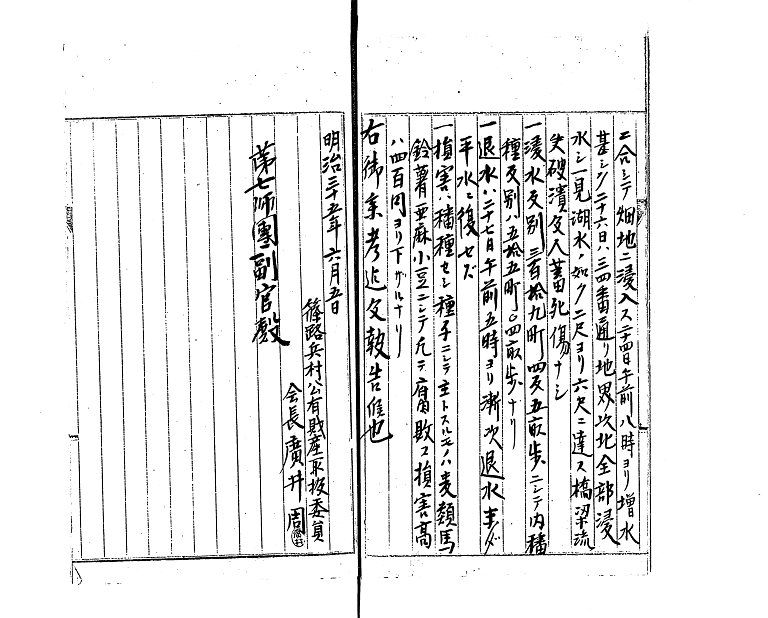 ニ合シテ畑地ニ浸入ス二十四日午前八時ヨリ増水
甚シク二十六日ハ三四番通リ地界以北全部浸
水シ一見湖水ノ如ク二尺ヨリ六尺ニ達ス橋梁流
失破潰及人畜死傷ナシ
一浸水反別三百拾九町四反五畝歩ニシテ内播
種反別ハ五拾五町〇四畝歩ナリ
一退水ハ二十七日午前五時ヨリ漸次退水未ダ
平水ニ復セズ
一損害ハ播種セシ種子ニシテ主トスルモノハ麦類馬
鈴薯亜麻小豆ニシテ凡テ腐敗シ損害高
ハ四百円ヨリ下ザルナリ
右御参考迄及報告候也
明治三十五年六月五日
篠路兵村公有財産取扱委員
会長廣井周
第七師團副官殿